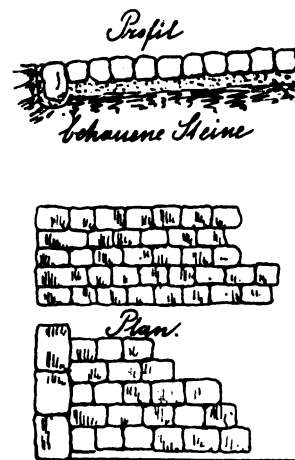 Profil
behauene Steine
Plan.